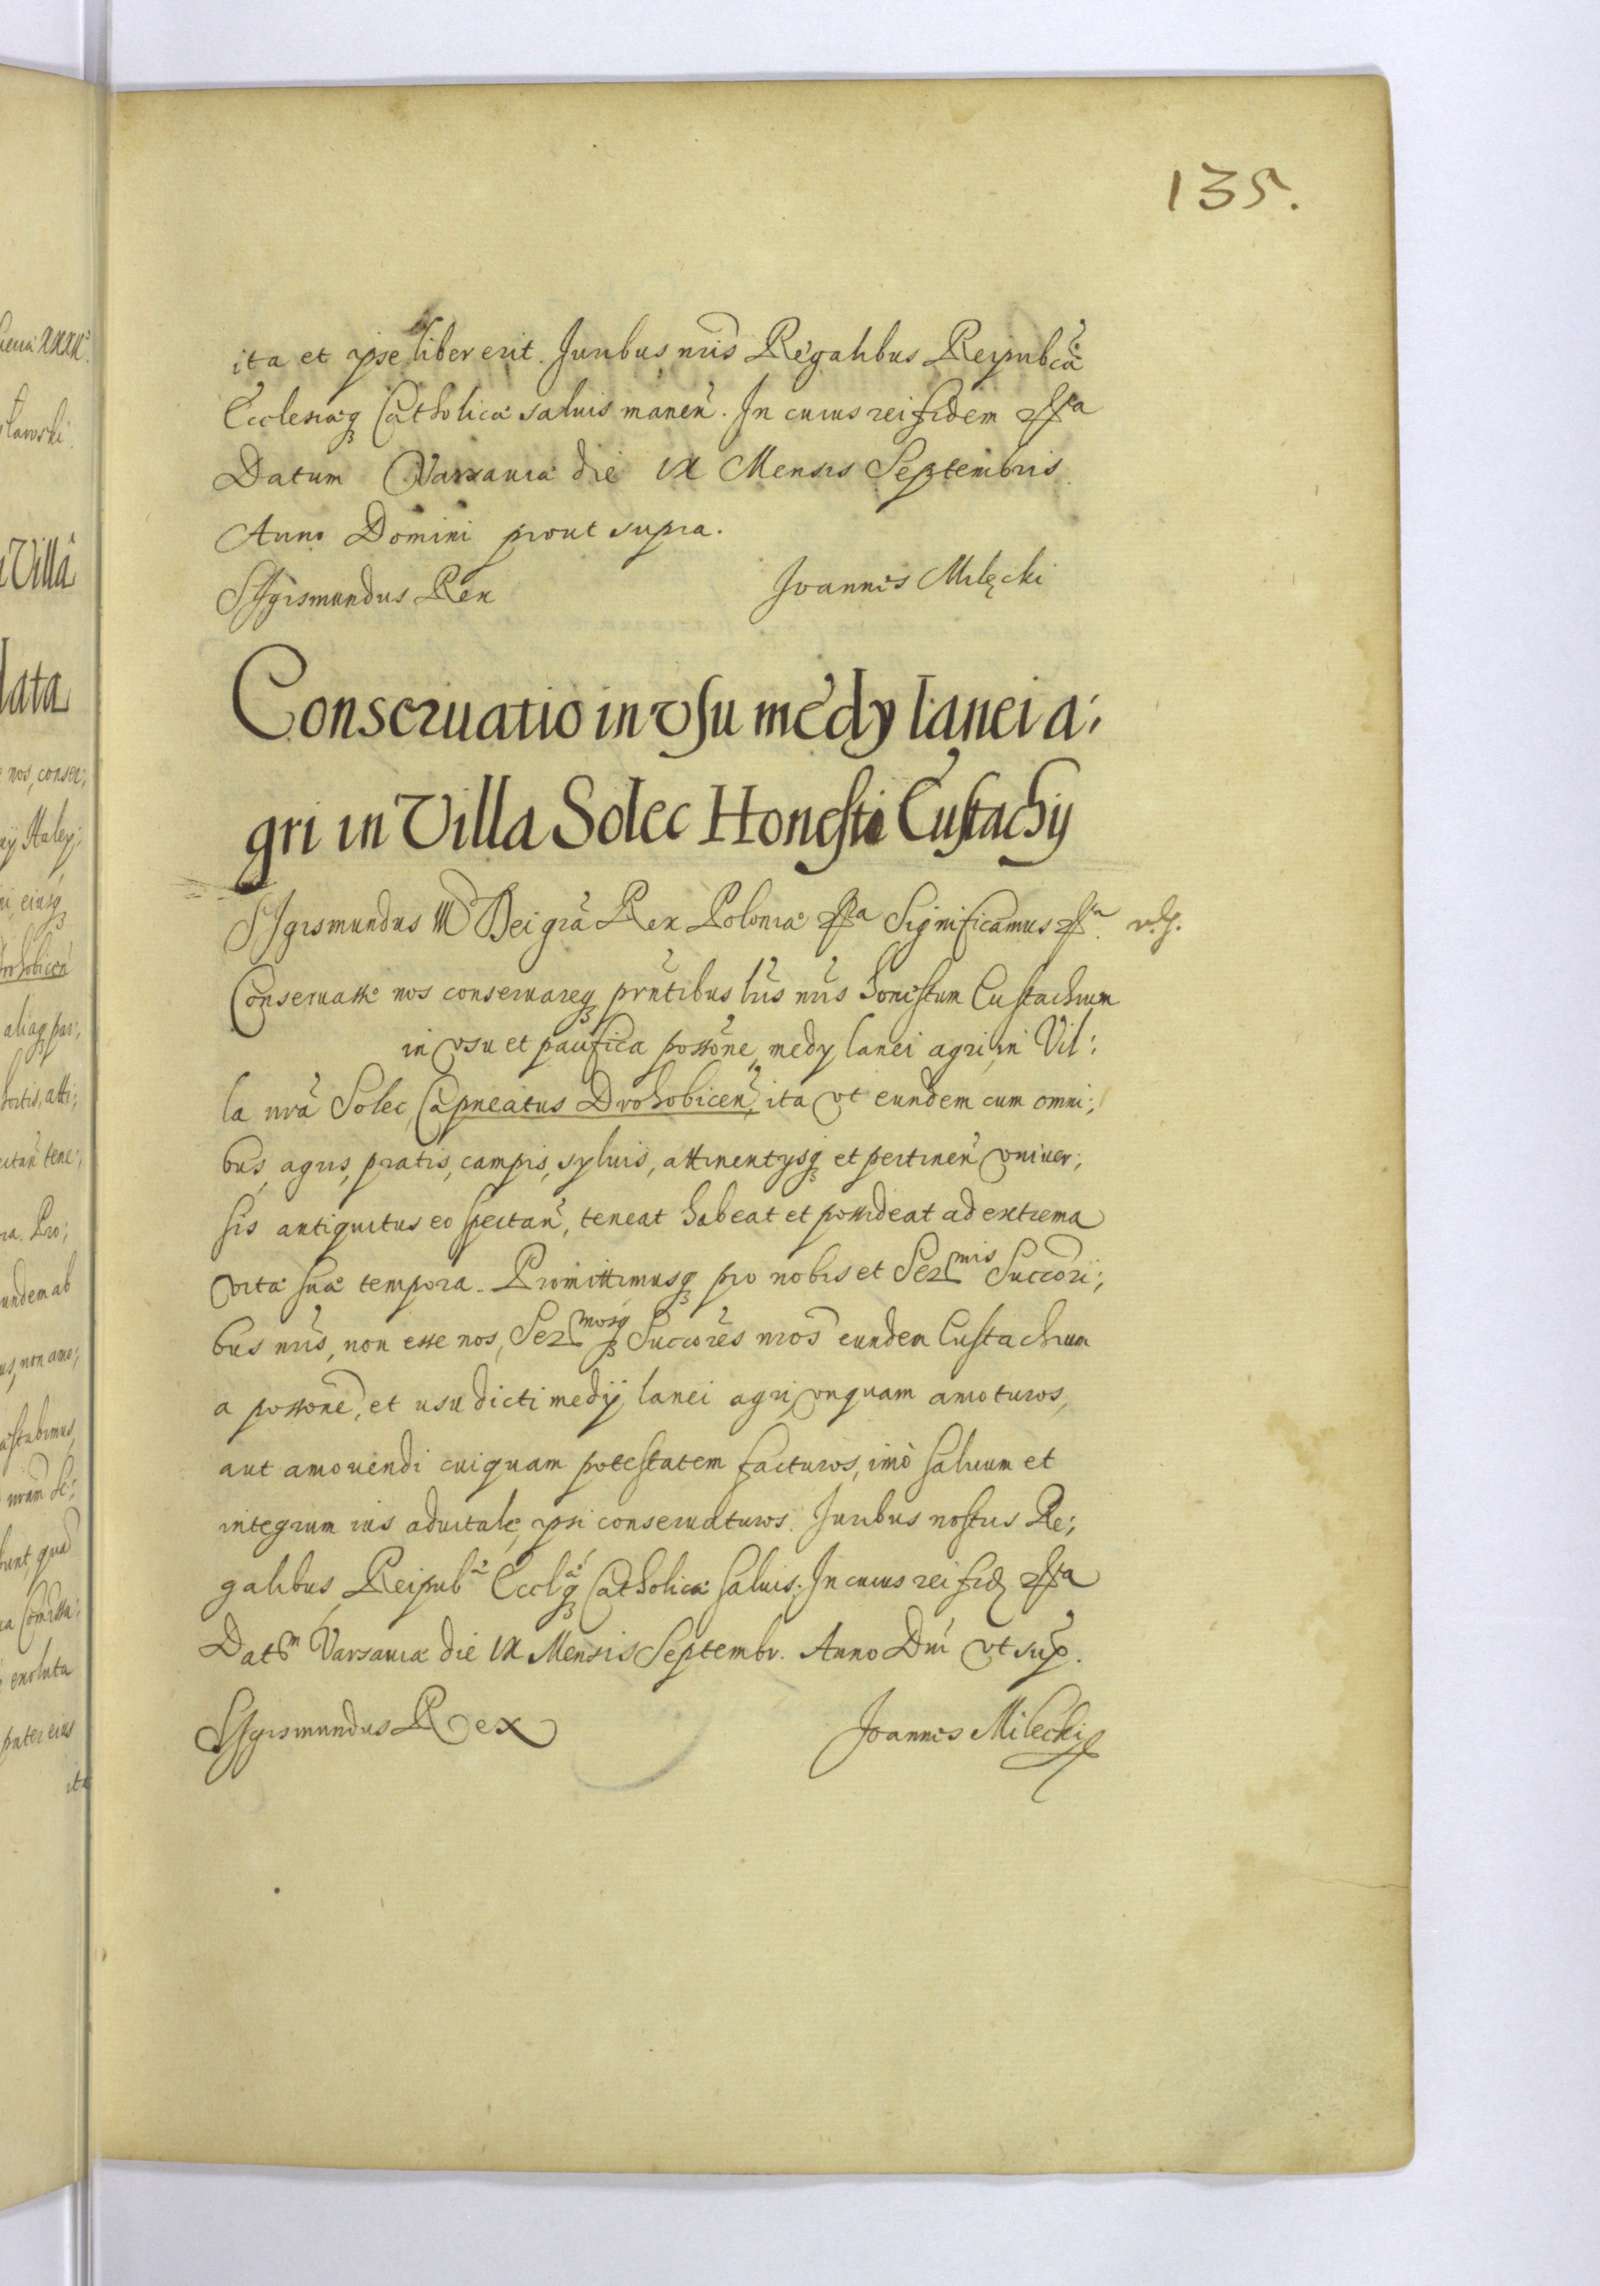 135.
ita et ipse liber erit. Juribus nris Regalibus Reipubcæ
Ecclesiæq Catholicæ saluis manen. In cuius rei fidem &a
Datum Varsauiæ die IX Mensis Septembris
Anno Domini prout supra.
Sigismundus Rex Joannes Milęcki
Conseruatio in vsu medy lanei a;
gri in Villa Solec Honesti Eustachij
Sigismundus III Dei grā Rex Poloniæ &a Significamus &a. v. s.
Conseruasse nos conseruareq prntibus lris nris honestum Eustachium
in vsu et pacifica possone medy lanei agri, in Vil:
la nrā Solec, Capneatus Drohobicen, ita vt eundem cum omni;
bus, agris, pratis, campis, syluis, attinentysq et pertinen vniuer;
sis antiquitus eo spectan, teneat habeat et possideat ad extrema
vitæ suæ tempora. Promittimusq pro nobis et Ser mis Succori;
bus nris, non esse nos, Ser mosq Succores nros eundem Eustachium
a possone, et usu dicti medij lanei agri vnquam amoturos,
aut amouendi cuiquam potestatem facturos, imò saluum et
integrum ius aduitale ipsi conseruaturos. Juribus nostris Re;
galibus Reipub Ecclæq Catholicæ saluis. In cuius rei fid &a
Datm Varsauiæ die IX Mensis Septembr. Anno Dni vt sup.
Sigismundus Rex Joannes Milecki